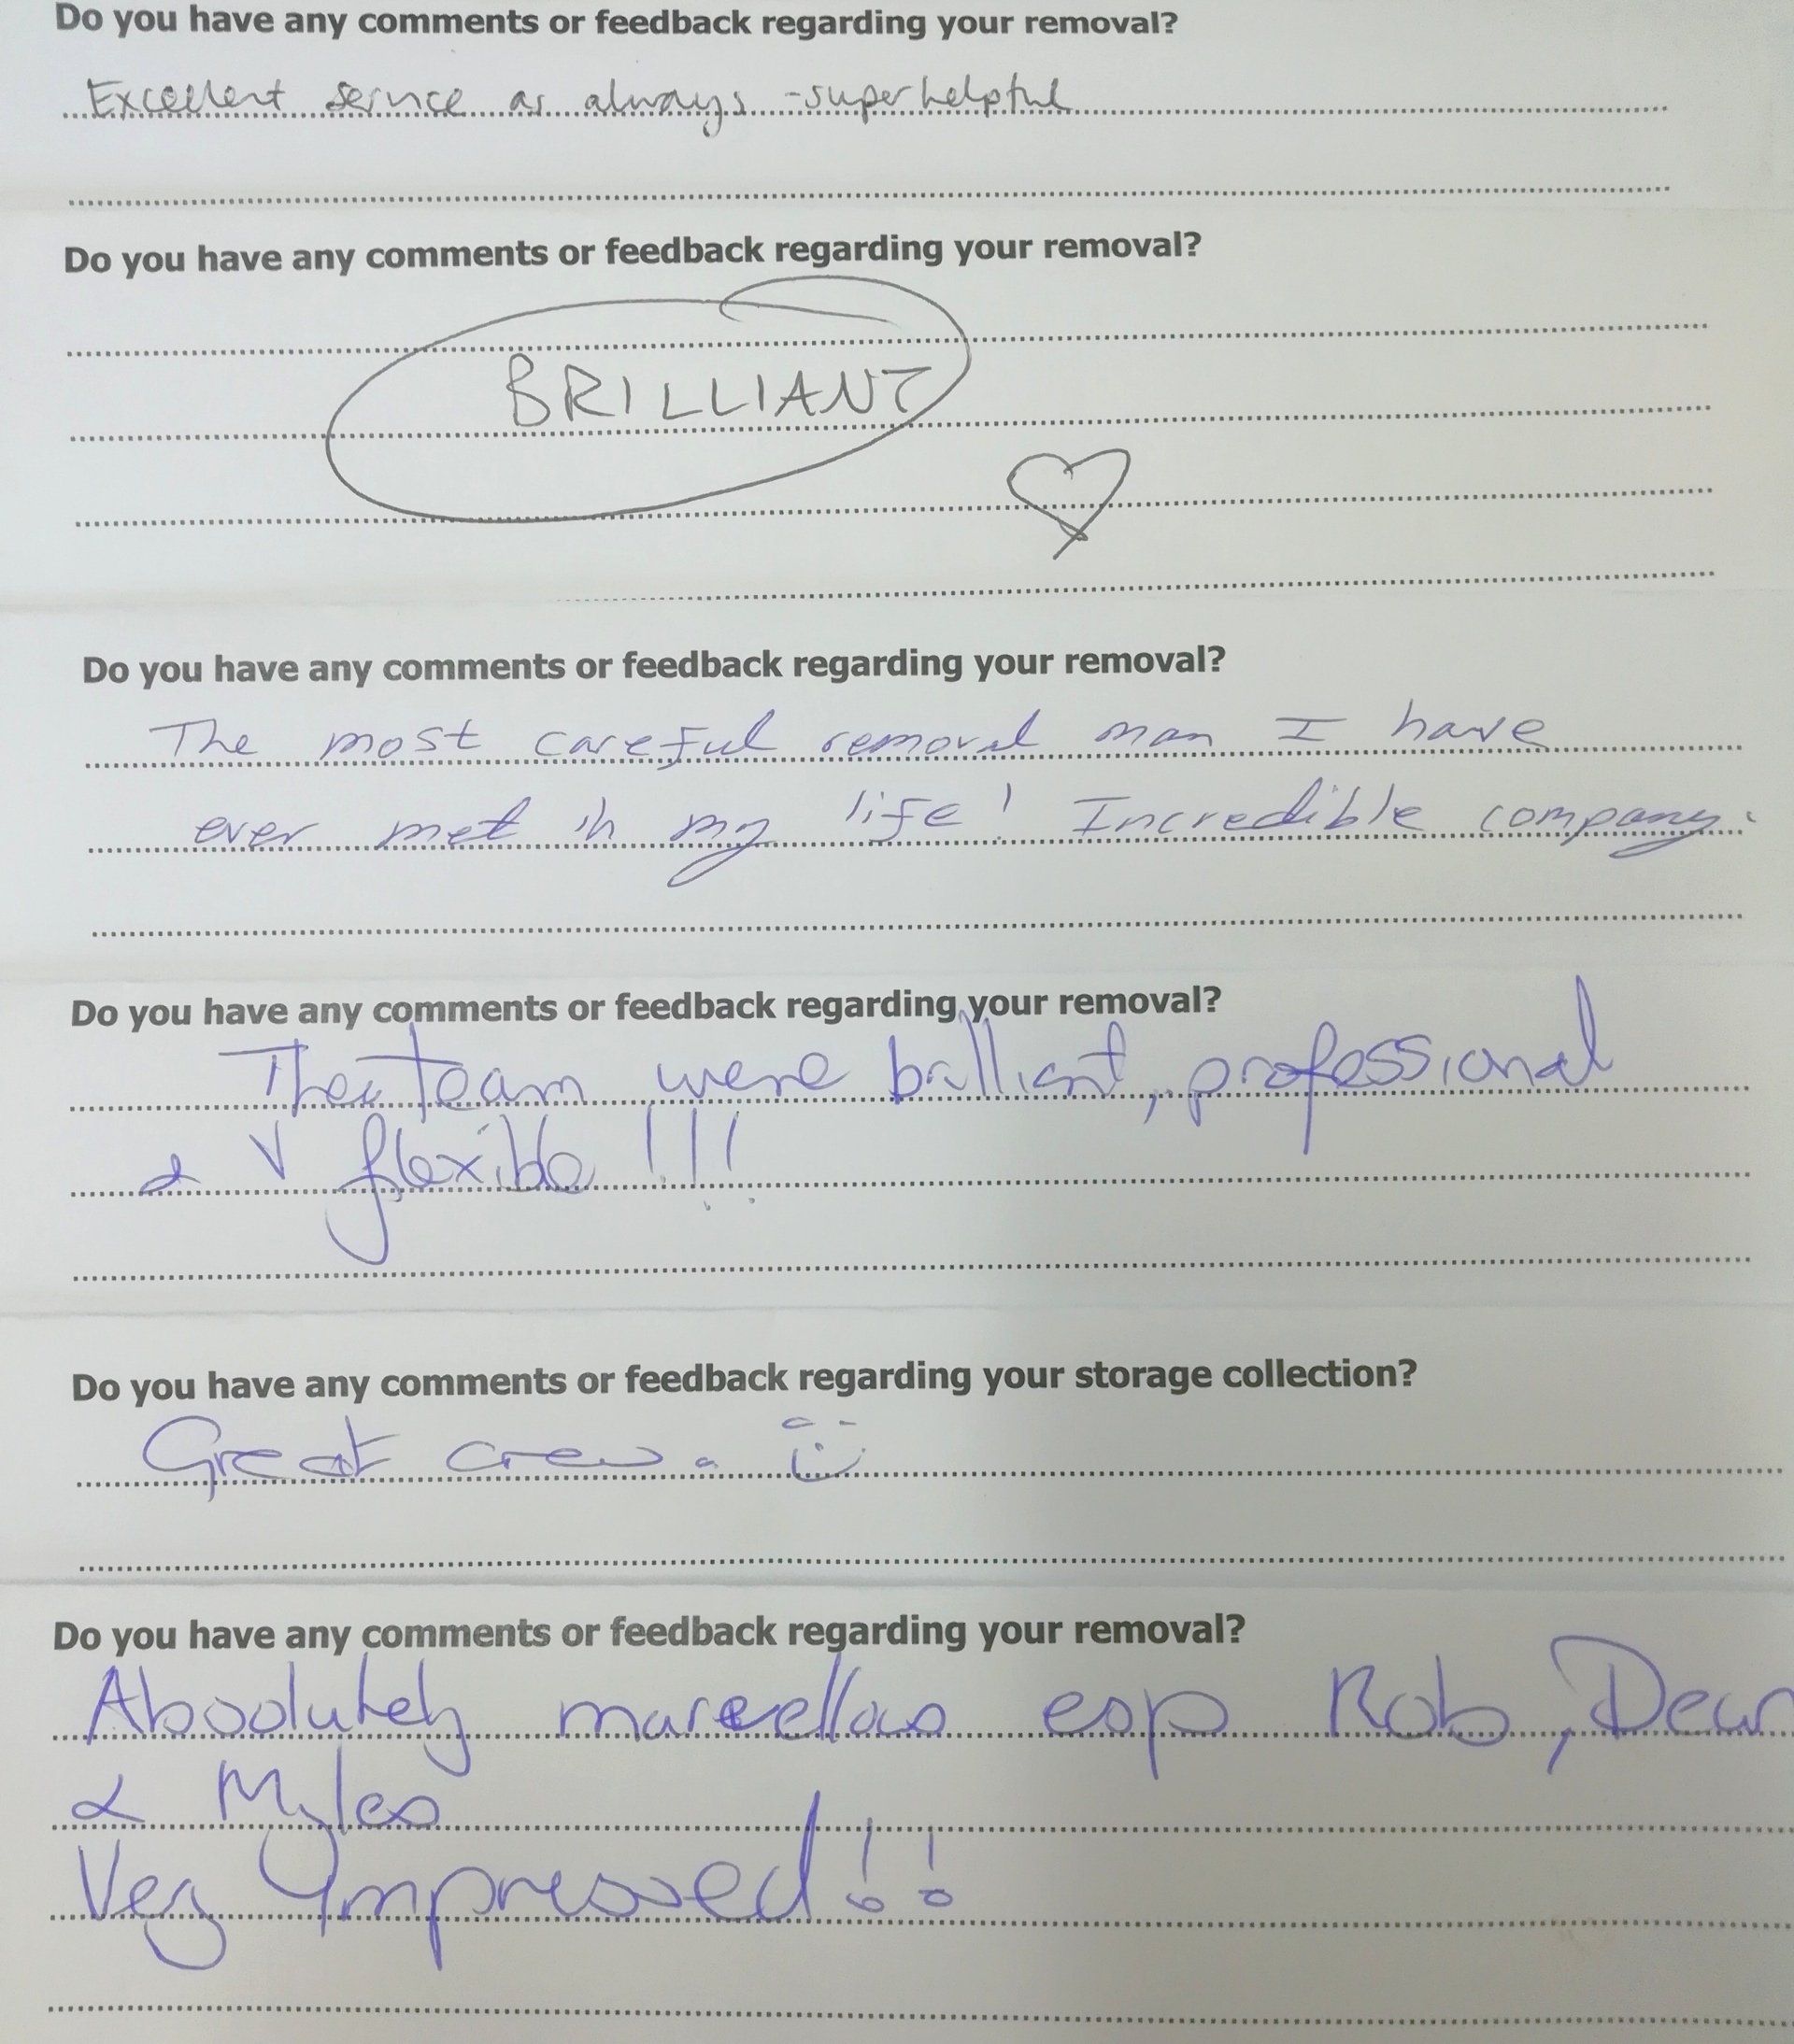 Do you have any comments or feedback regarding your removal?
Excellent service as always - super helpful
Do you have any comments or feedback regarding your removal?
BRILLIANT
Do you have any comments or feedback regarding your removal?
The most careful removal man I have
ever met in my life! Incredible company.
Do you have any comments or feedback regarding your removal?
The team were brilliant, professional
& v flexible!!!
Do you have any comments or feedback regarding your storage collection?
Great crew.
Do you have any comments or feedback regarding your removal?
Absolutely marvellous esp Rob, Dean
& Myles
Very Impressed!!